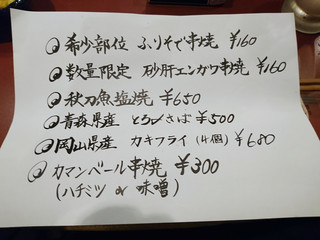 希少部位 ふりそで串焼 ¥160
数量限定 砂肝エンガワ串焼 ¥160
秋刀魚塩焼 ¥650
青森県産 とろ〆さば ¥500
岡山県産 カキフライ(4個) ¥680
カマンベール串焼 ¥300
(ハチミツ or 味噌)